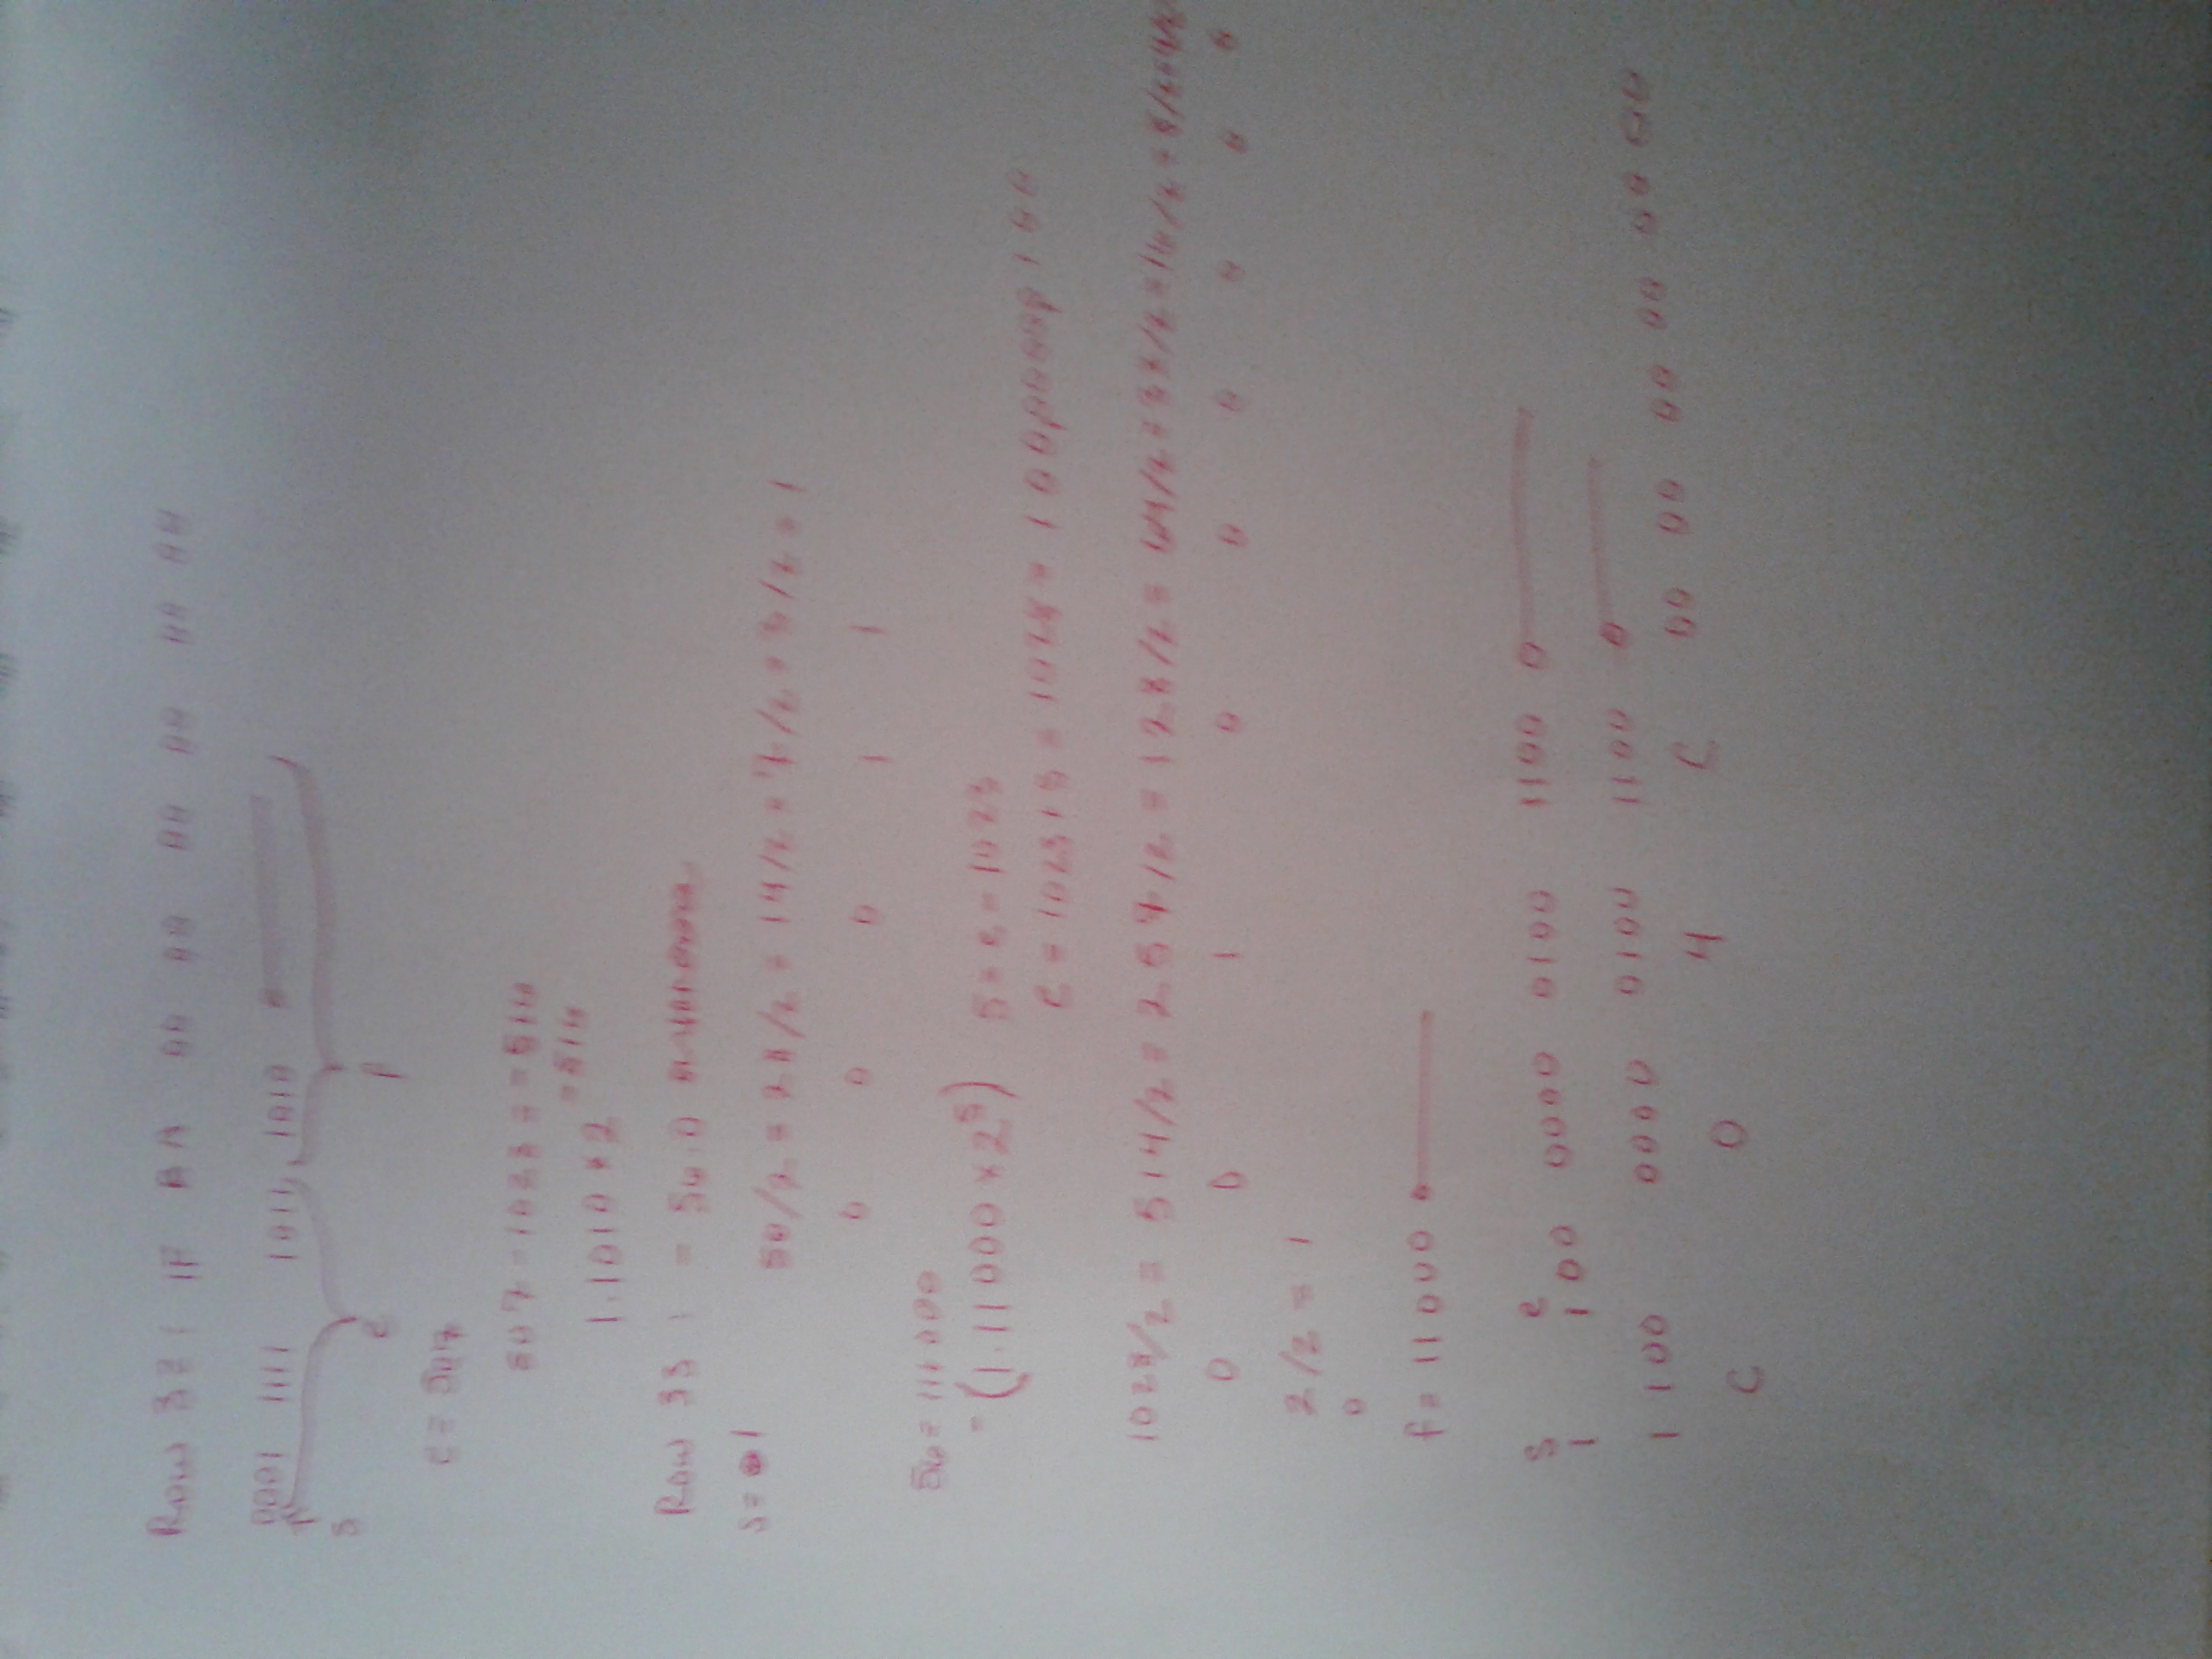 Row 321 1F BA 00 00 00 00 00 00
0001 1111 1011, 1010 0
s e f
e = 507
507 - 1023 = - 516
= -516
1.1010 x 2
Row 331 - 56.0
s = 1
56/2 = 28/2 = 14/2 = 7/2 = 3/2 = 1
0 0 0 1 1
56 = 111000
= (1.11000 x 2^5) 5 = e - 1023
e = 1023+5 = 1028 = 10000000100
1028/2 = 514/2 = 257/2 = 128/2 = 64/2 = 32/2 = 16/2 = 8/2
0 0 1 0 0 0 0 0 0
2/2 = 1
0
f = 11000 0
s e
1 100 0000 0100 1100 0
1 100 0000 0100 1100 0
C 0 4 C 00 00 00 00 00 00